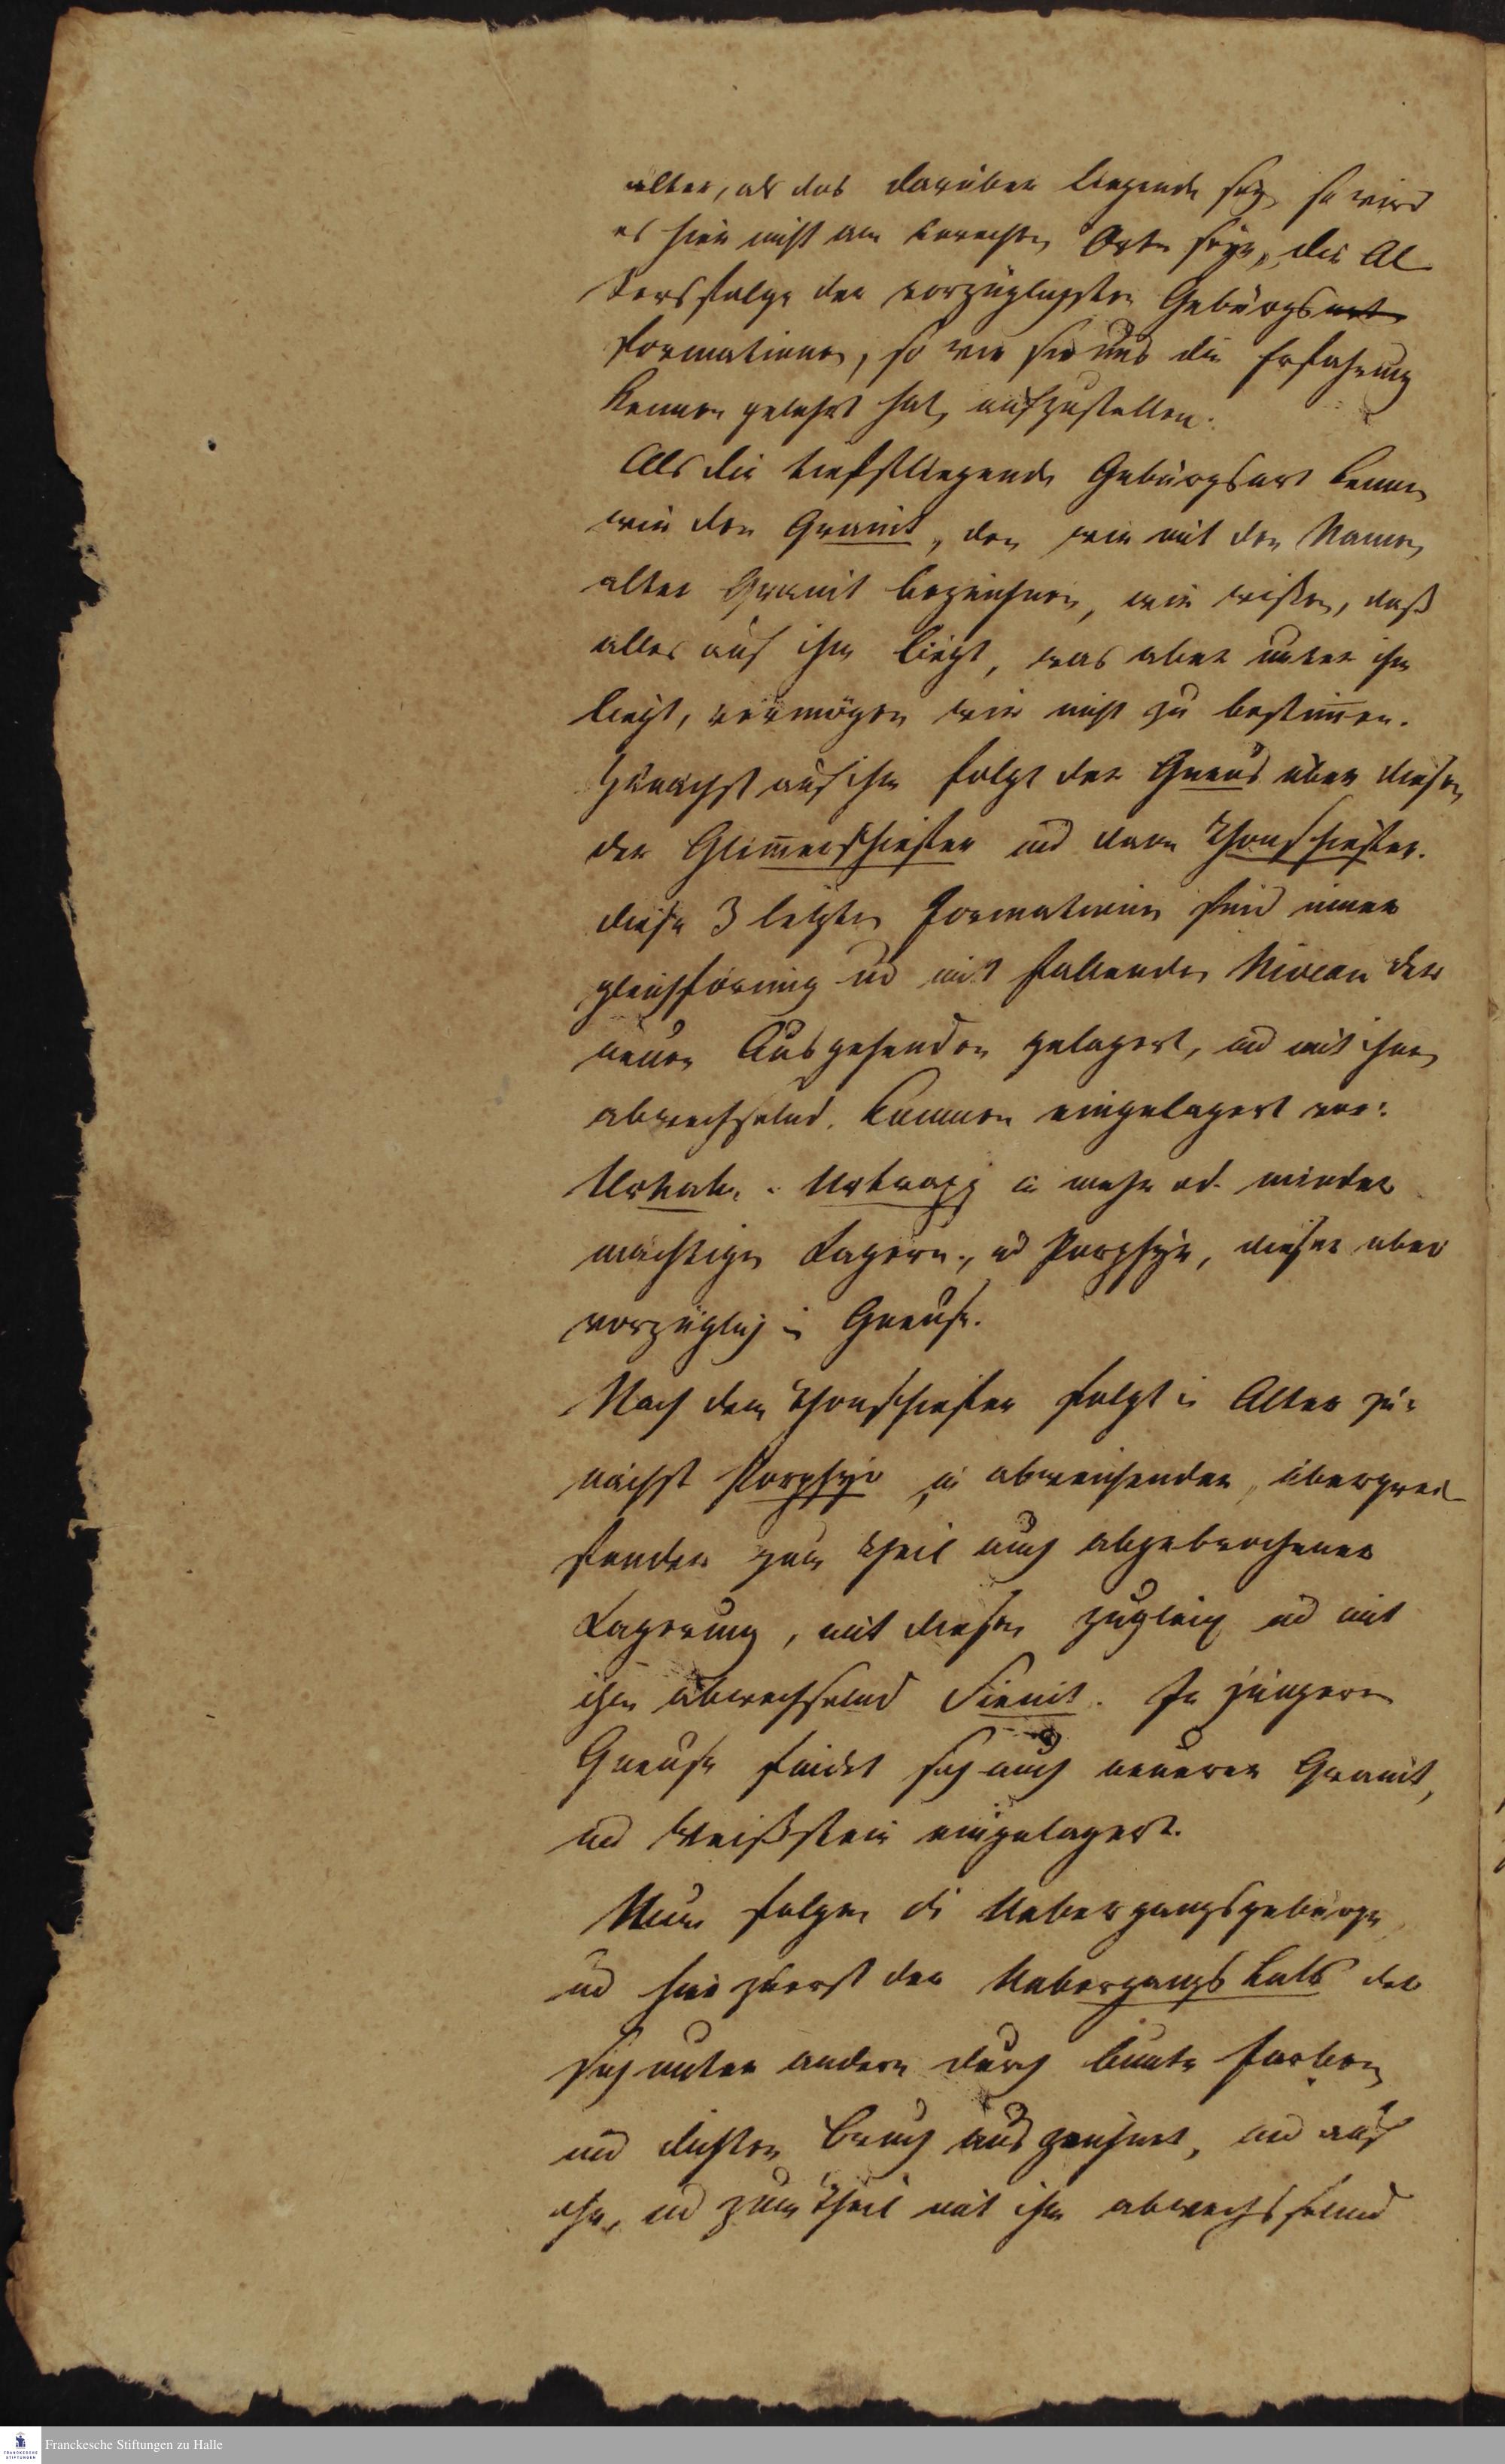 älter, als das darüber liegende sey, so wird
es hier nicht am unrechten Orte seyn, die Al-
tersfolge der vorzüglichsten Gebürgsart
formationen, so wie sie uns die Erfahrung
kennen gelehrt hat, aufzustellen.
Als die tiefstliegende Gebürgsart kennen
wir den Granit, den wir mit den Namen
alter Granit bezeichnen, wir wißen, daß
alles auf ihm liegt, was aber unter ihm
liegt, vermögen wir nicht zu bestim̄en.
Zunächst auf ihm folgt der Gneus über diesen
der Glim̄erschiefer und dann Thonschiefer.
diese 3 letzten Formationen sind immer
gleichförmig und mit fallenden Niveau der
neuen Ausgehenden gelagert, und mit ihnen
abwechselnd. kommen eingelagert vor:
Urkalk. Urtrapp in mehr od. minder
mächtigen Lagern, und Porphyr, dieser aber
vorzüglich in Gneuse.
Nach dem Thonschiefer folgt in Alter zu-
nächst Porphyr in abweichender, übergrei-
fender zum Theil auch abgebrochener
Lagerung, mit diesen zugleich und mit
ihm abwechselnd Sienit. In jüngern
Gneuse findet sich auch neuerer Granit,
und Weißstein eingelagert.
Nun folgen die Uebergangsgebürge
und hier zuerst der Uebergangs kalk der
sich unter andern durch bunte Farben
und dichten Bruch auszeichnet, und auf
ihm, und zum Theil mit ihm abwechsselnd
Franckesche Stiftungen zu Halle